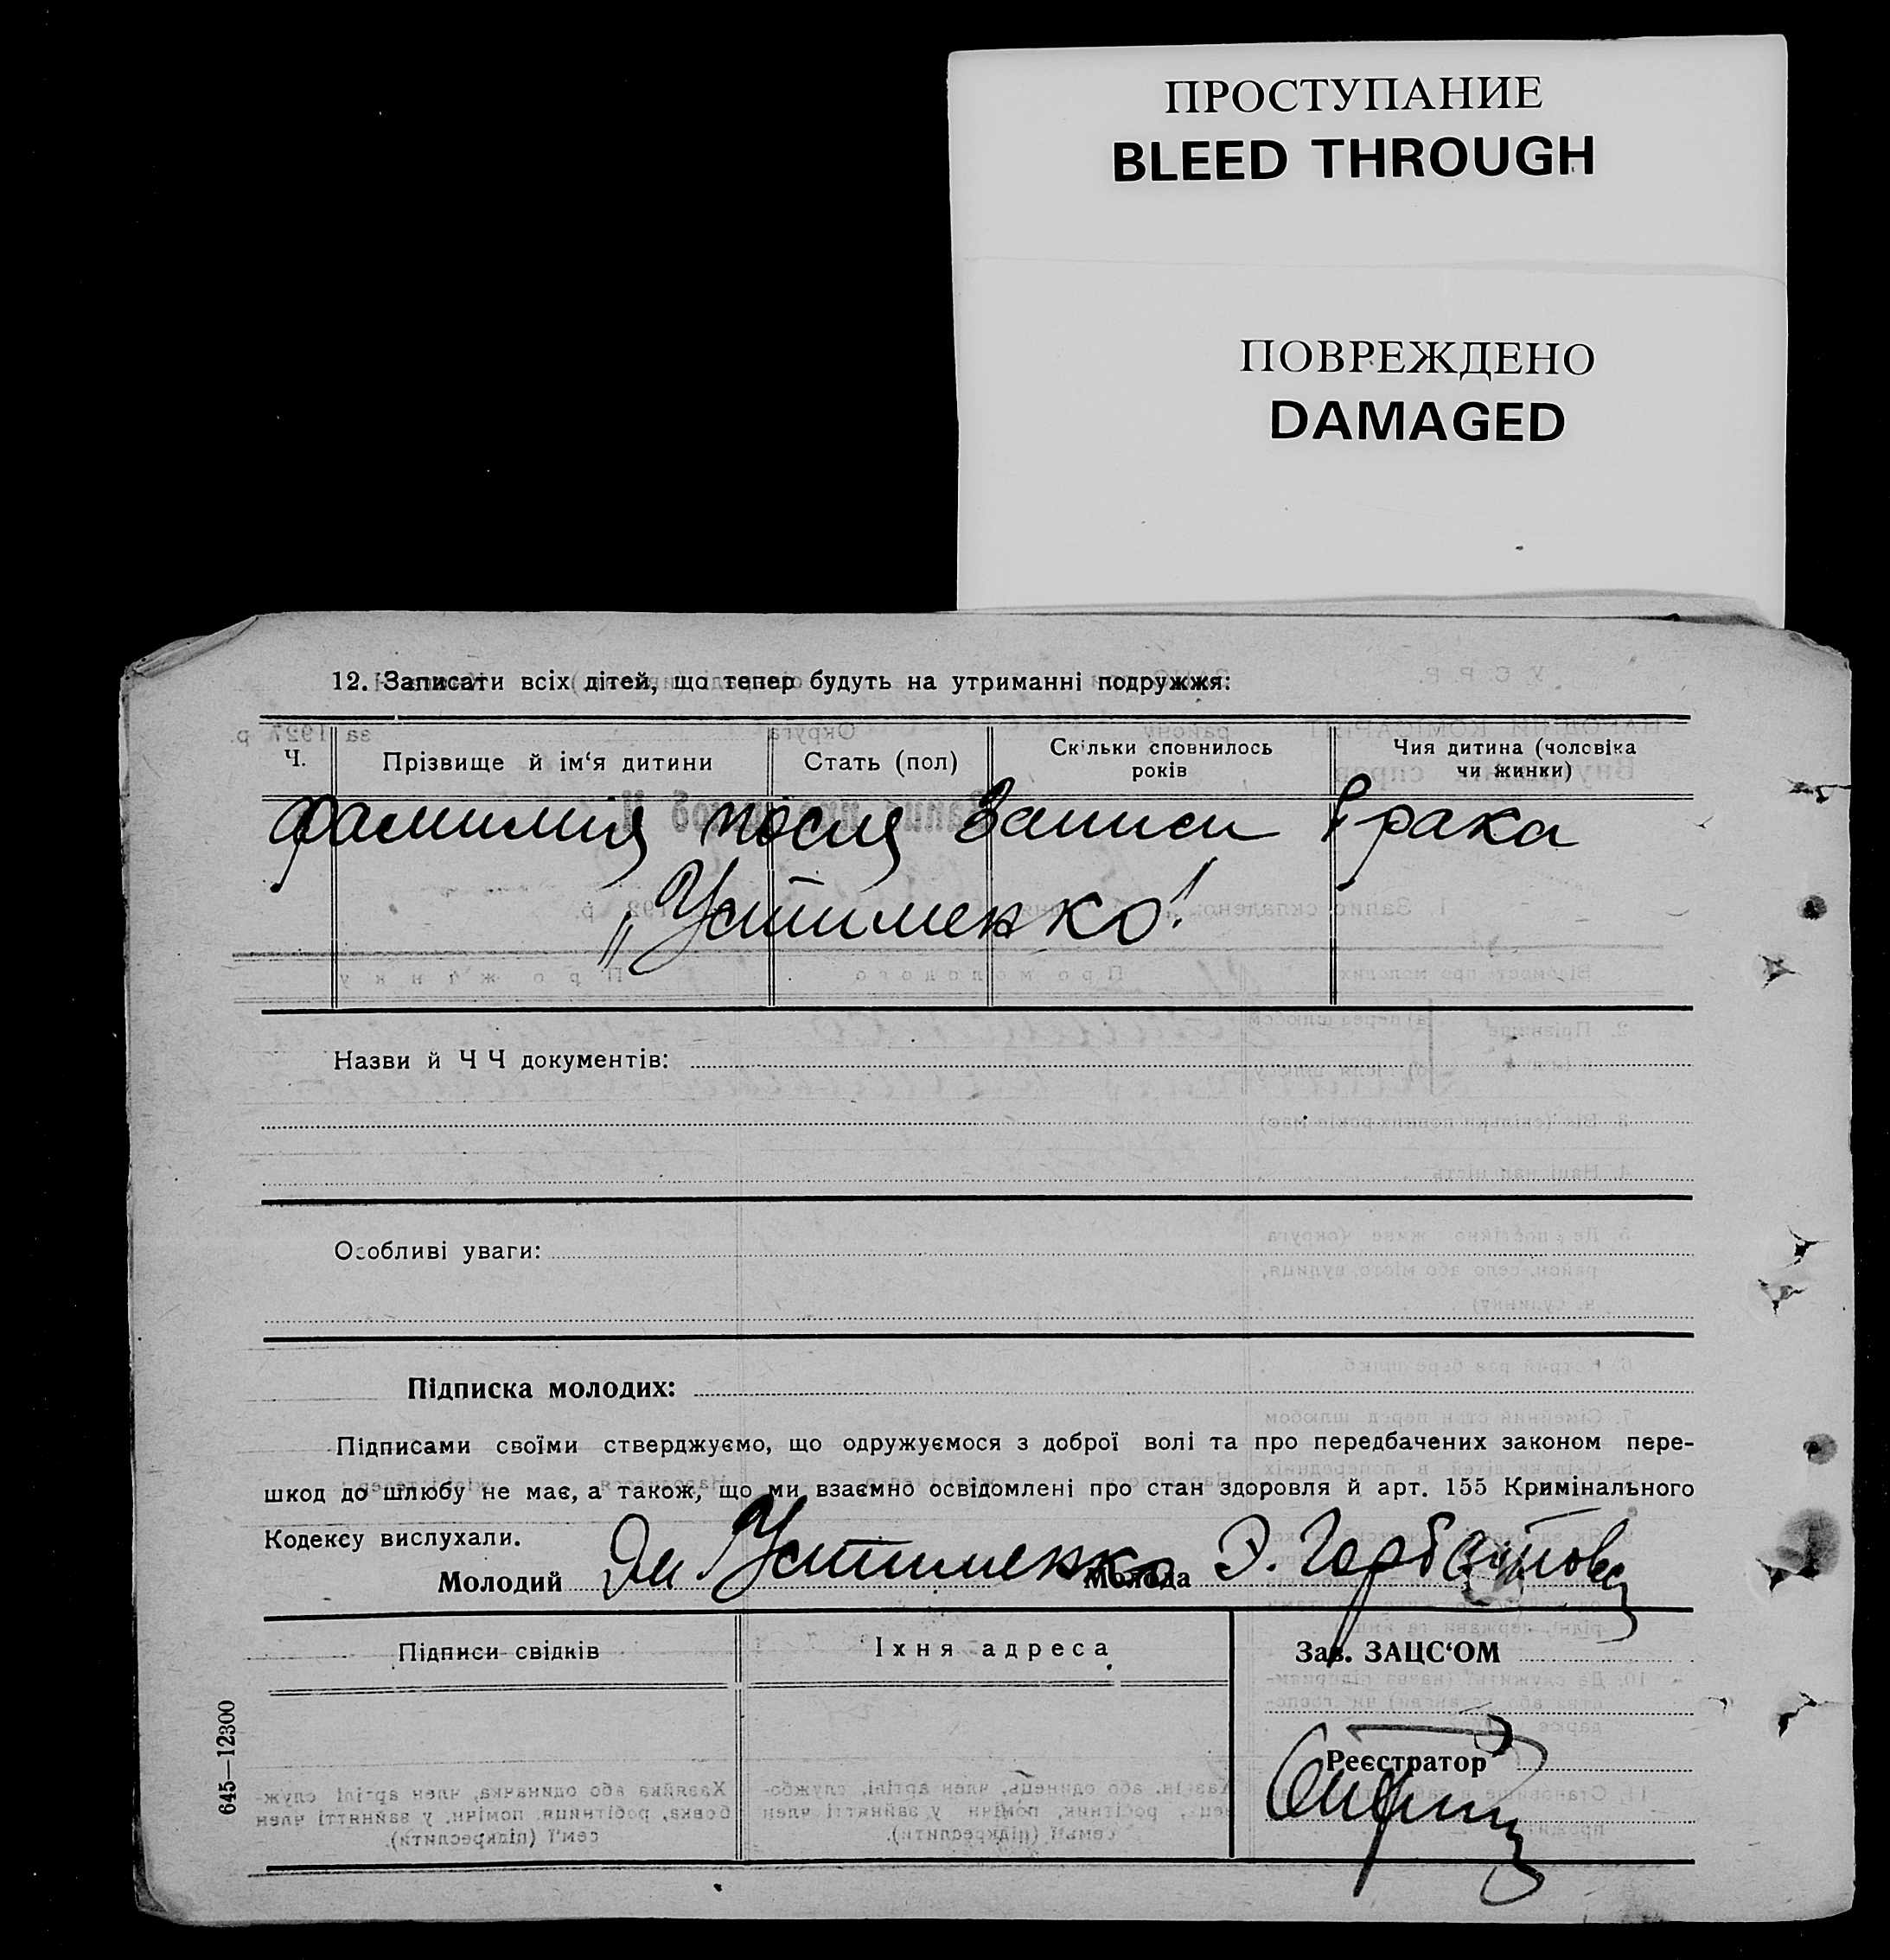 ПРОСТУПАНИЕ
BLEED THROUGH
ПОВРЕЖДЕНО
DAMAGED
12. Записати всіх дітей, що тепер будуть на утриманні подружжя:
Ч.
Прізвище й ім‘я дитини
Стать (пол)
Скільки сповнилось
років
Чия дитина (чоловіка
чи жинки)
фамилия после записи брака
„Устименко"
Назви й Ч Ч документів:
Особливі уваги:
Підписка молодих:
Підписами своїми стверджуємо, що одружуємося з доброї волі та про передбачених законом пере-
шкод до шлюбу не має, а також, що ми взаємно освідомлені про стан здоровля й арт. 155 Кримінального
Кодексу вислухали.
Молодий Устименко Молода Э. Горбатова
Підписи свідків
Їхня адреса
Зав. ЗАЦС‘ОМ
Реєстратор
645—12300